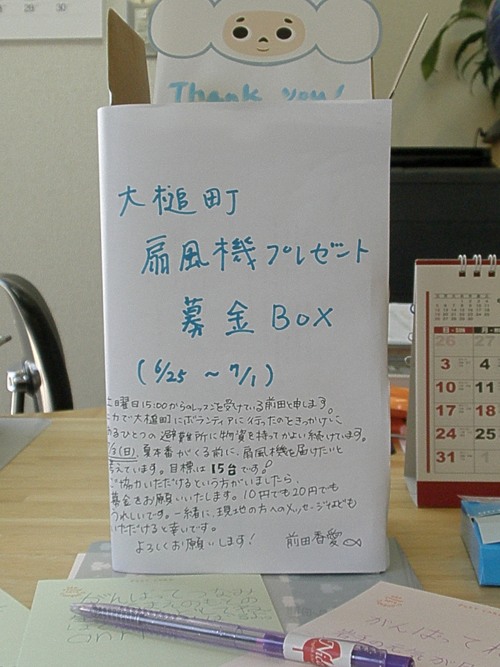 29 30
Thank you!
大槌町
扇風機プレゼント
募金BOX
(6/25 ~ 7/1)
土曜日15:00からのレッスンを受けている前田と申します。
大槌町にボランティアに行ったのときっかけに
あるひとつの避難所に物資を持ってかよい続けています。
(日)、夏本番がくる前に、扇風機を届けたいと
考えています。目標は15台です!
ご協力いただけるという方がいましたら、
募金をお願いいたします。10円でも20円でも
うれしいです。一緒に、現地の方へのメッセージなども
いただけると幸いです。
よろしくお願いします! 前田春愛
26 27
3 4
10 11
17 18
24 25
31
がんばって
がんばってね